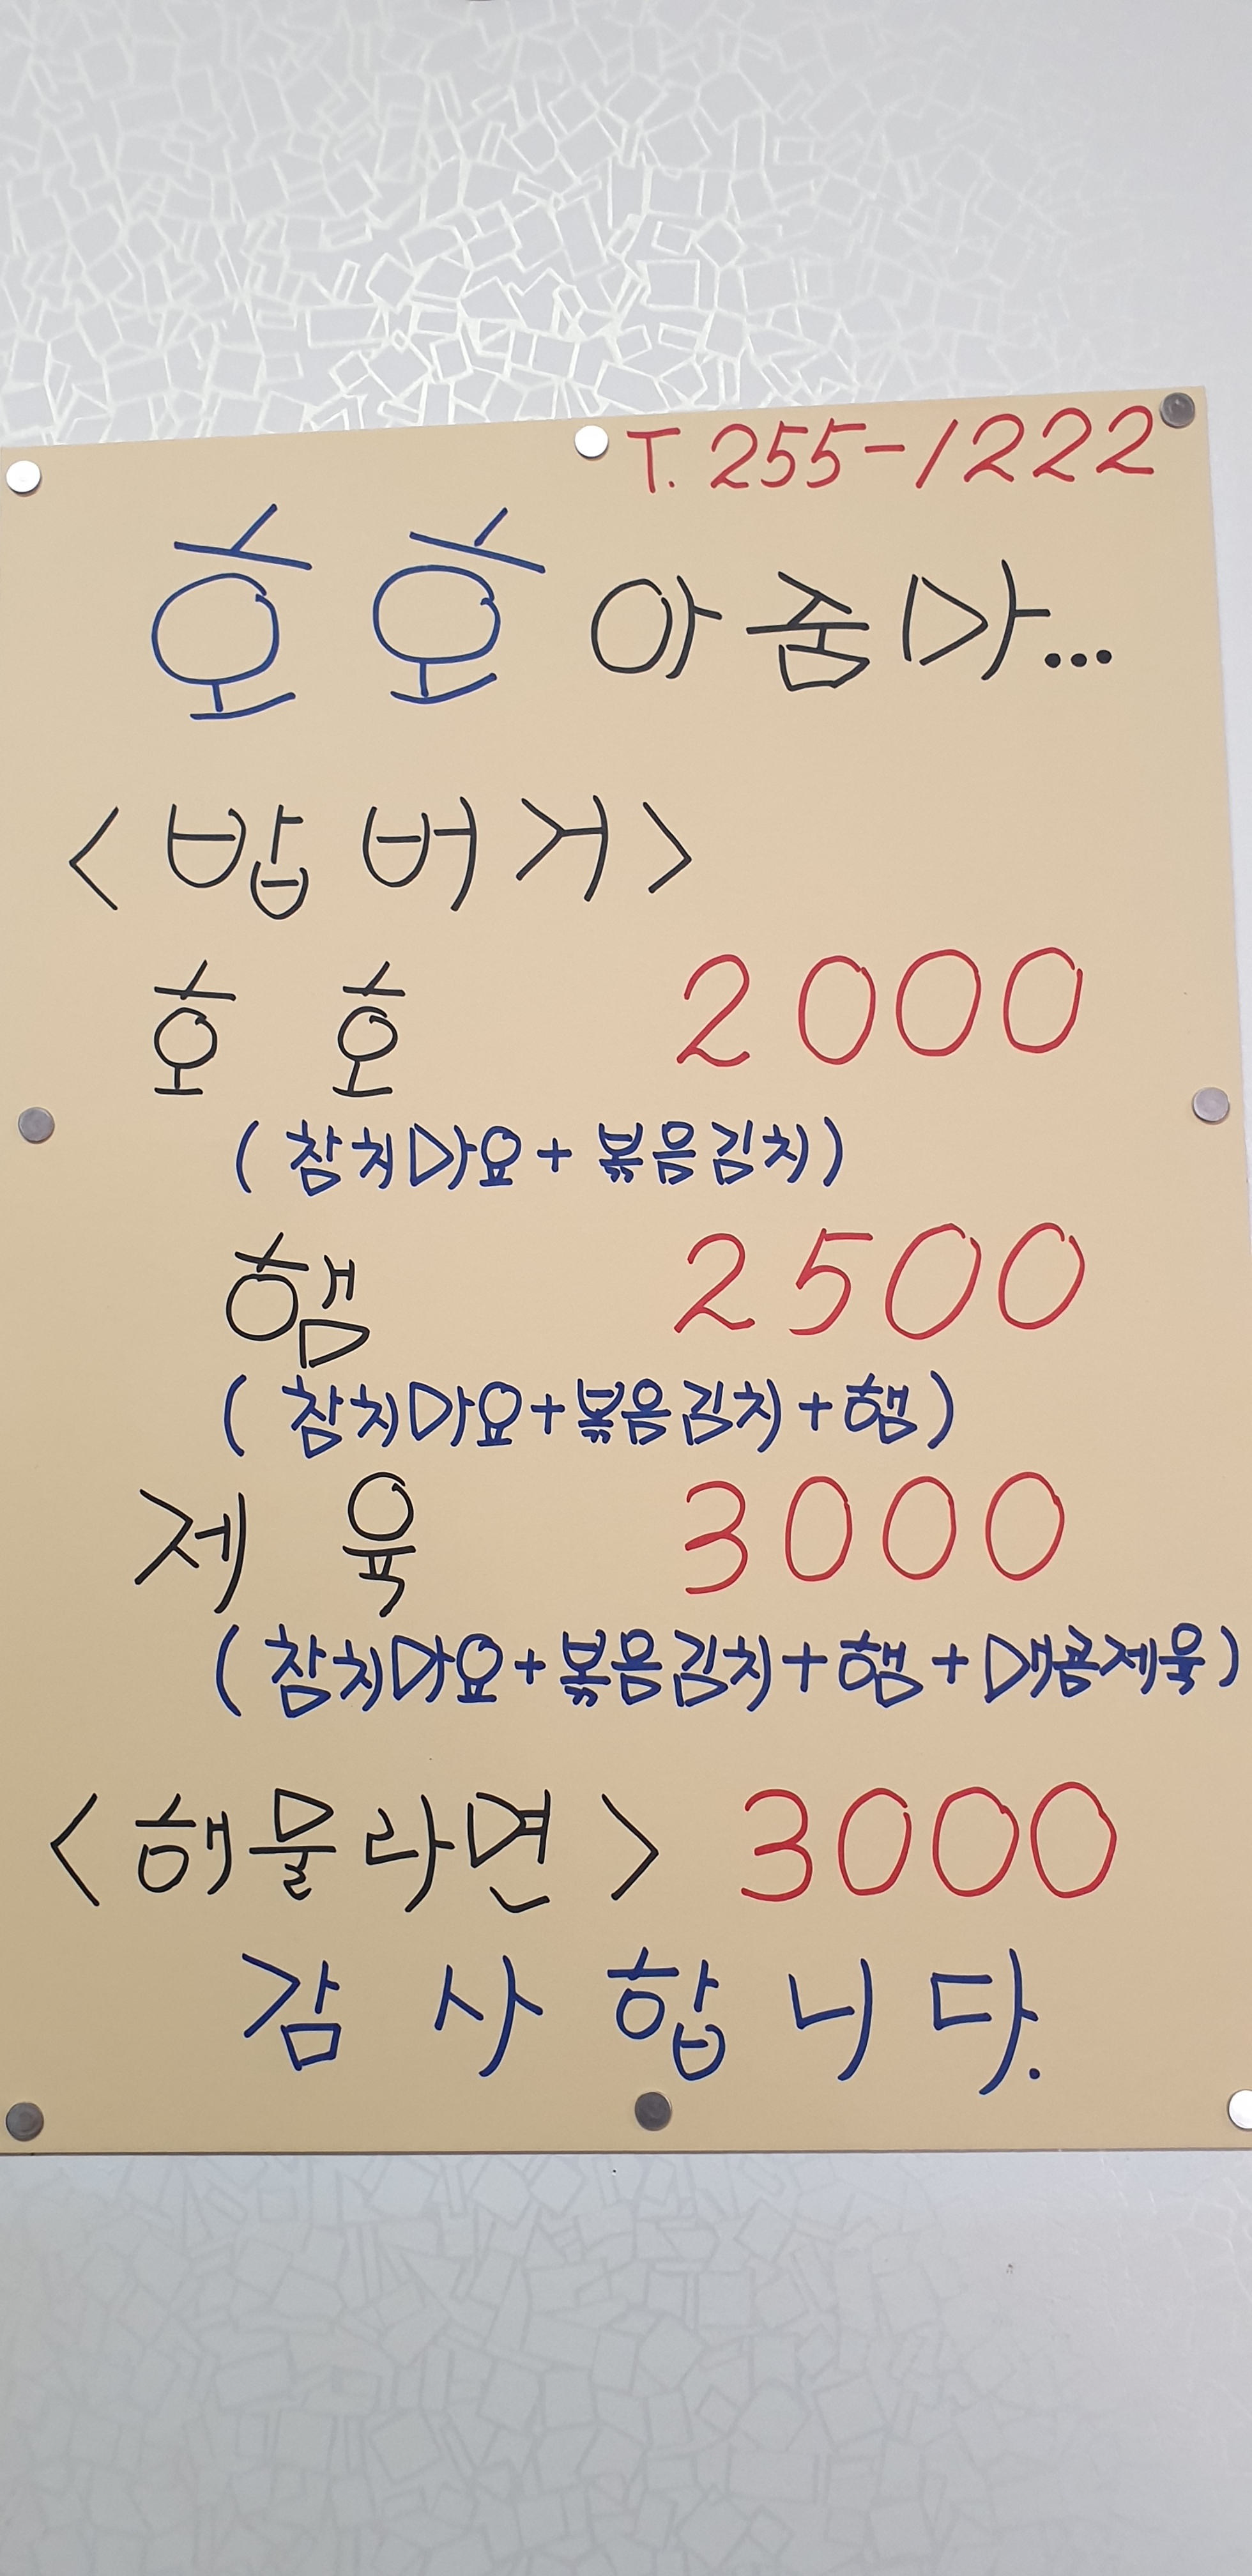 T. 255-1222
호호 아줌마...
<밥버거>
호호 2000
(참치마요+볶음김치)
햄 2500
(참치마요+볶음김치+햄)
제육 3000
(참치마요+볶음김치+햄+매콤제육)
<해물라면> 3000
감사합니다.